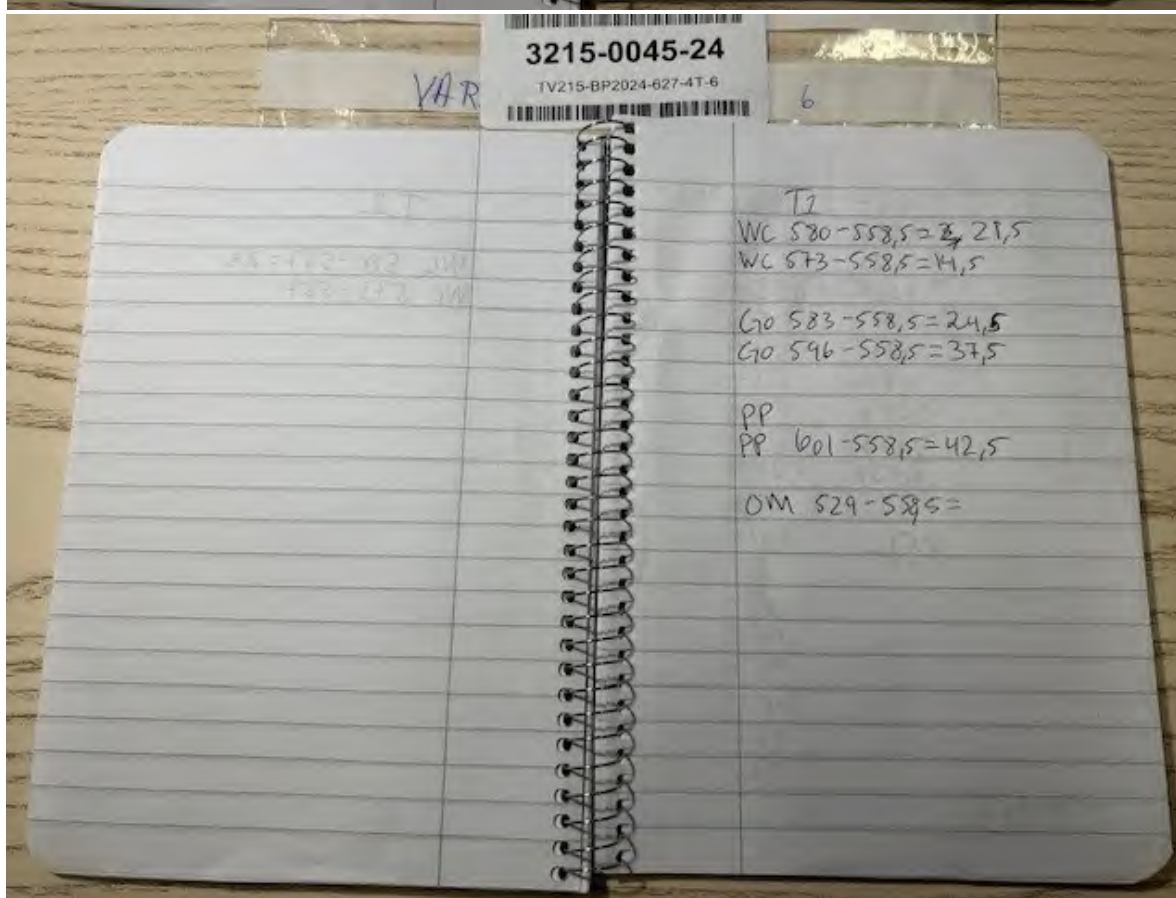 3215-0045-24
TV215-BP2024-627-4T-6
VAR 6
T1
WC 580-558,5= 21,5
WC 573-558,5=14,5
Go 583-558,5=24,5
Go 596-558,5=37,5
PP
PP 601-558,5=42,5
OM 529-558,5=